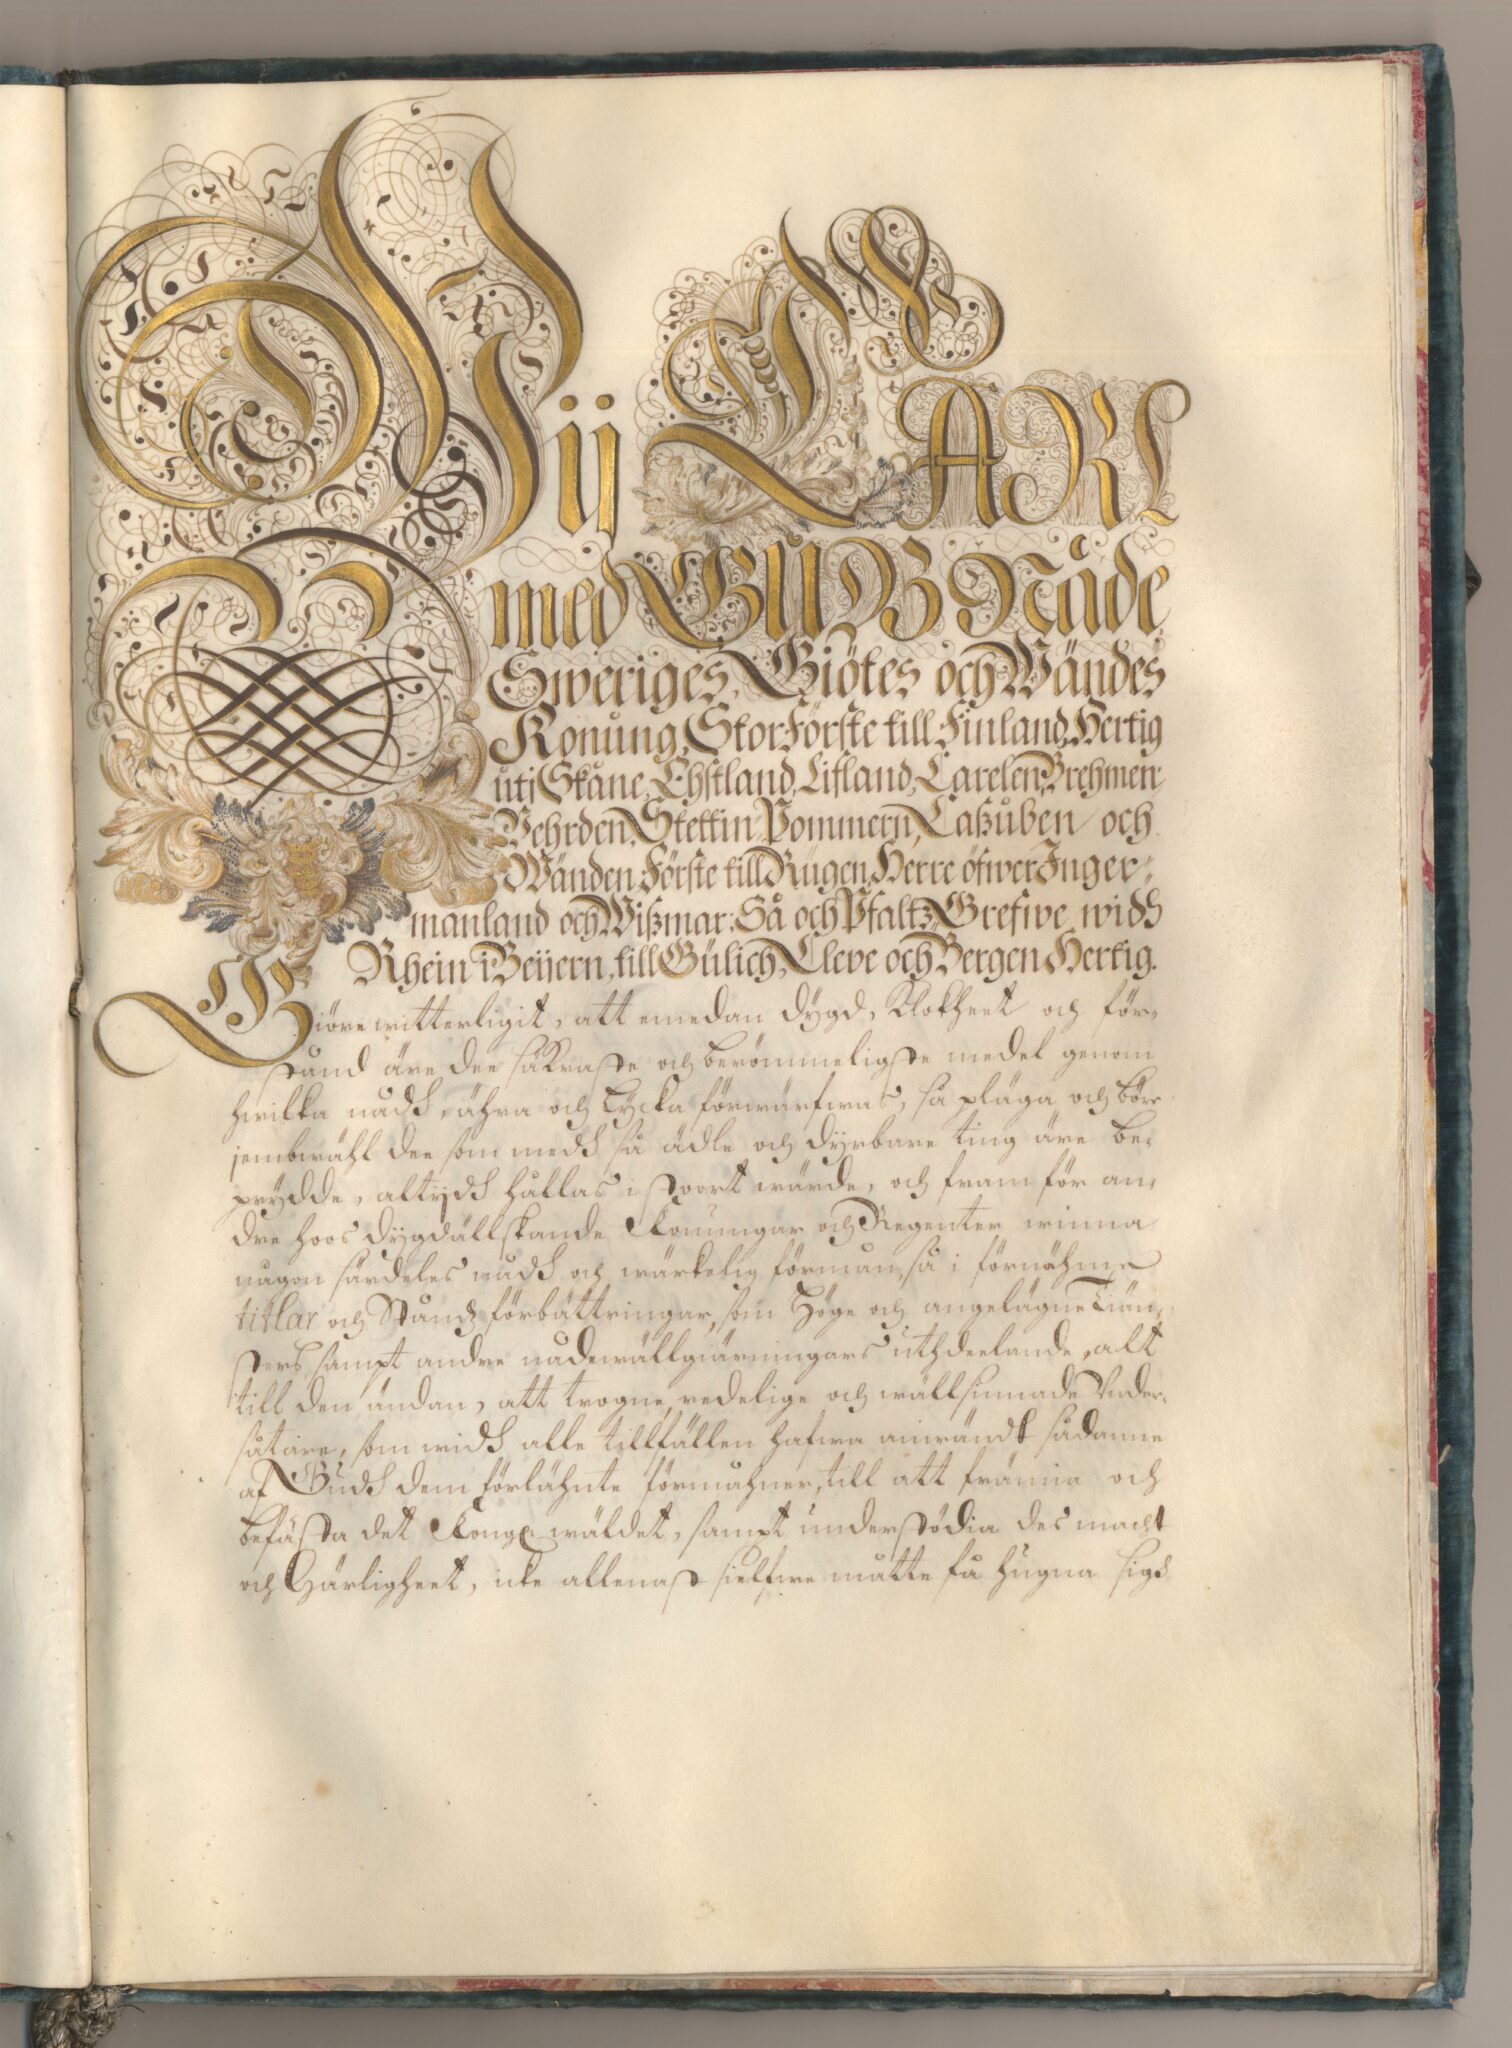 Wij CARL
med GUDZ Nåde
Sweriges, Giötes och Wändes
Konung, StorFörste till Finland, Hertig
utj Skåne, Ehstland, Lifland, Carelen, Brehmen
Vehrden, Stettin Pommern, Caßuben och
Wänden, Förste till Rügen, Herre öfwer Inger-
manland och Wißmar; Så och Pfaltz Grefwe widh
Rhein i Beijern, till Gülich, Cleve och Bergen Hertig.
Giöre witterligit, att emedan dygd, Klokheet och för-
stånd äre dee säkraste och berömmeligste medel genom
hwilka nådh, ähra och Lycka förwärfwas, så pläga och böre
jembwähl dee som medh så ädle och dyrbare ting äre be-
prydde, altijdh hållas i stoort wärde, och fram för an-
dre hoos dygdällskande Konungar och Regenter winna
någon särdeles nådh och wärkelig förmån, så i förnähme
titlar och Stånds förbättringar, som Höge och angelägne Tiän-
sters, sampt andre nådewällgiärningars uthdeelande, alt
till den ändan, att trogne, redelige och wällsinnade Under-
såtare, som widh alle tillfällen hafwa anwändt sådanne
af Gudh dem förlähnte förmåhner, till att främia och
befästa det Kongl. wäldet, sampt understödia des macht
och Härligheet, icke allenast sielfwe måtte få hugna sigh